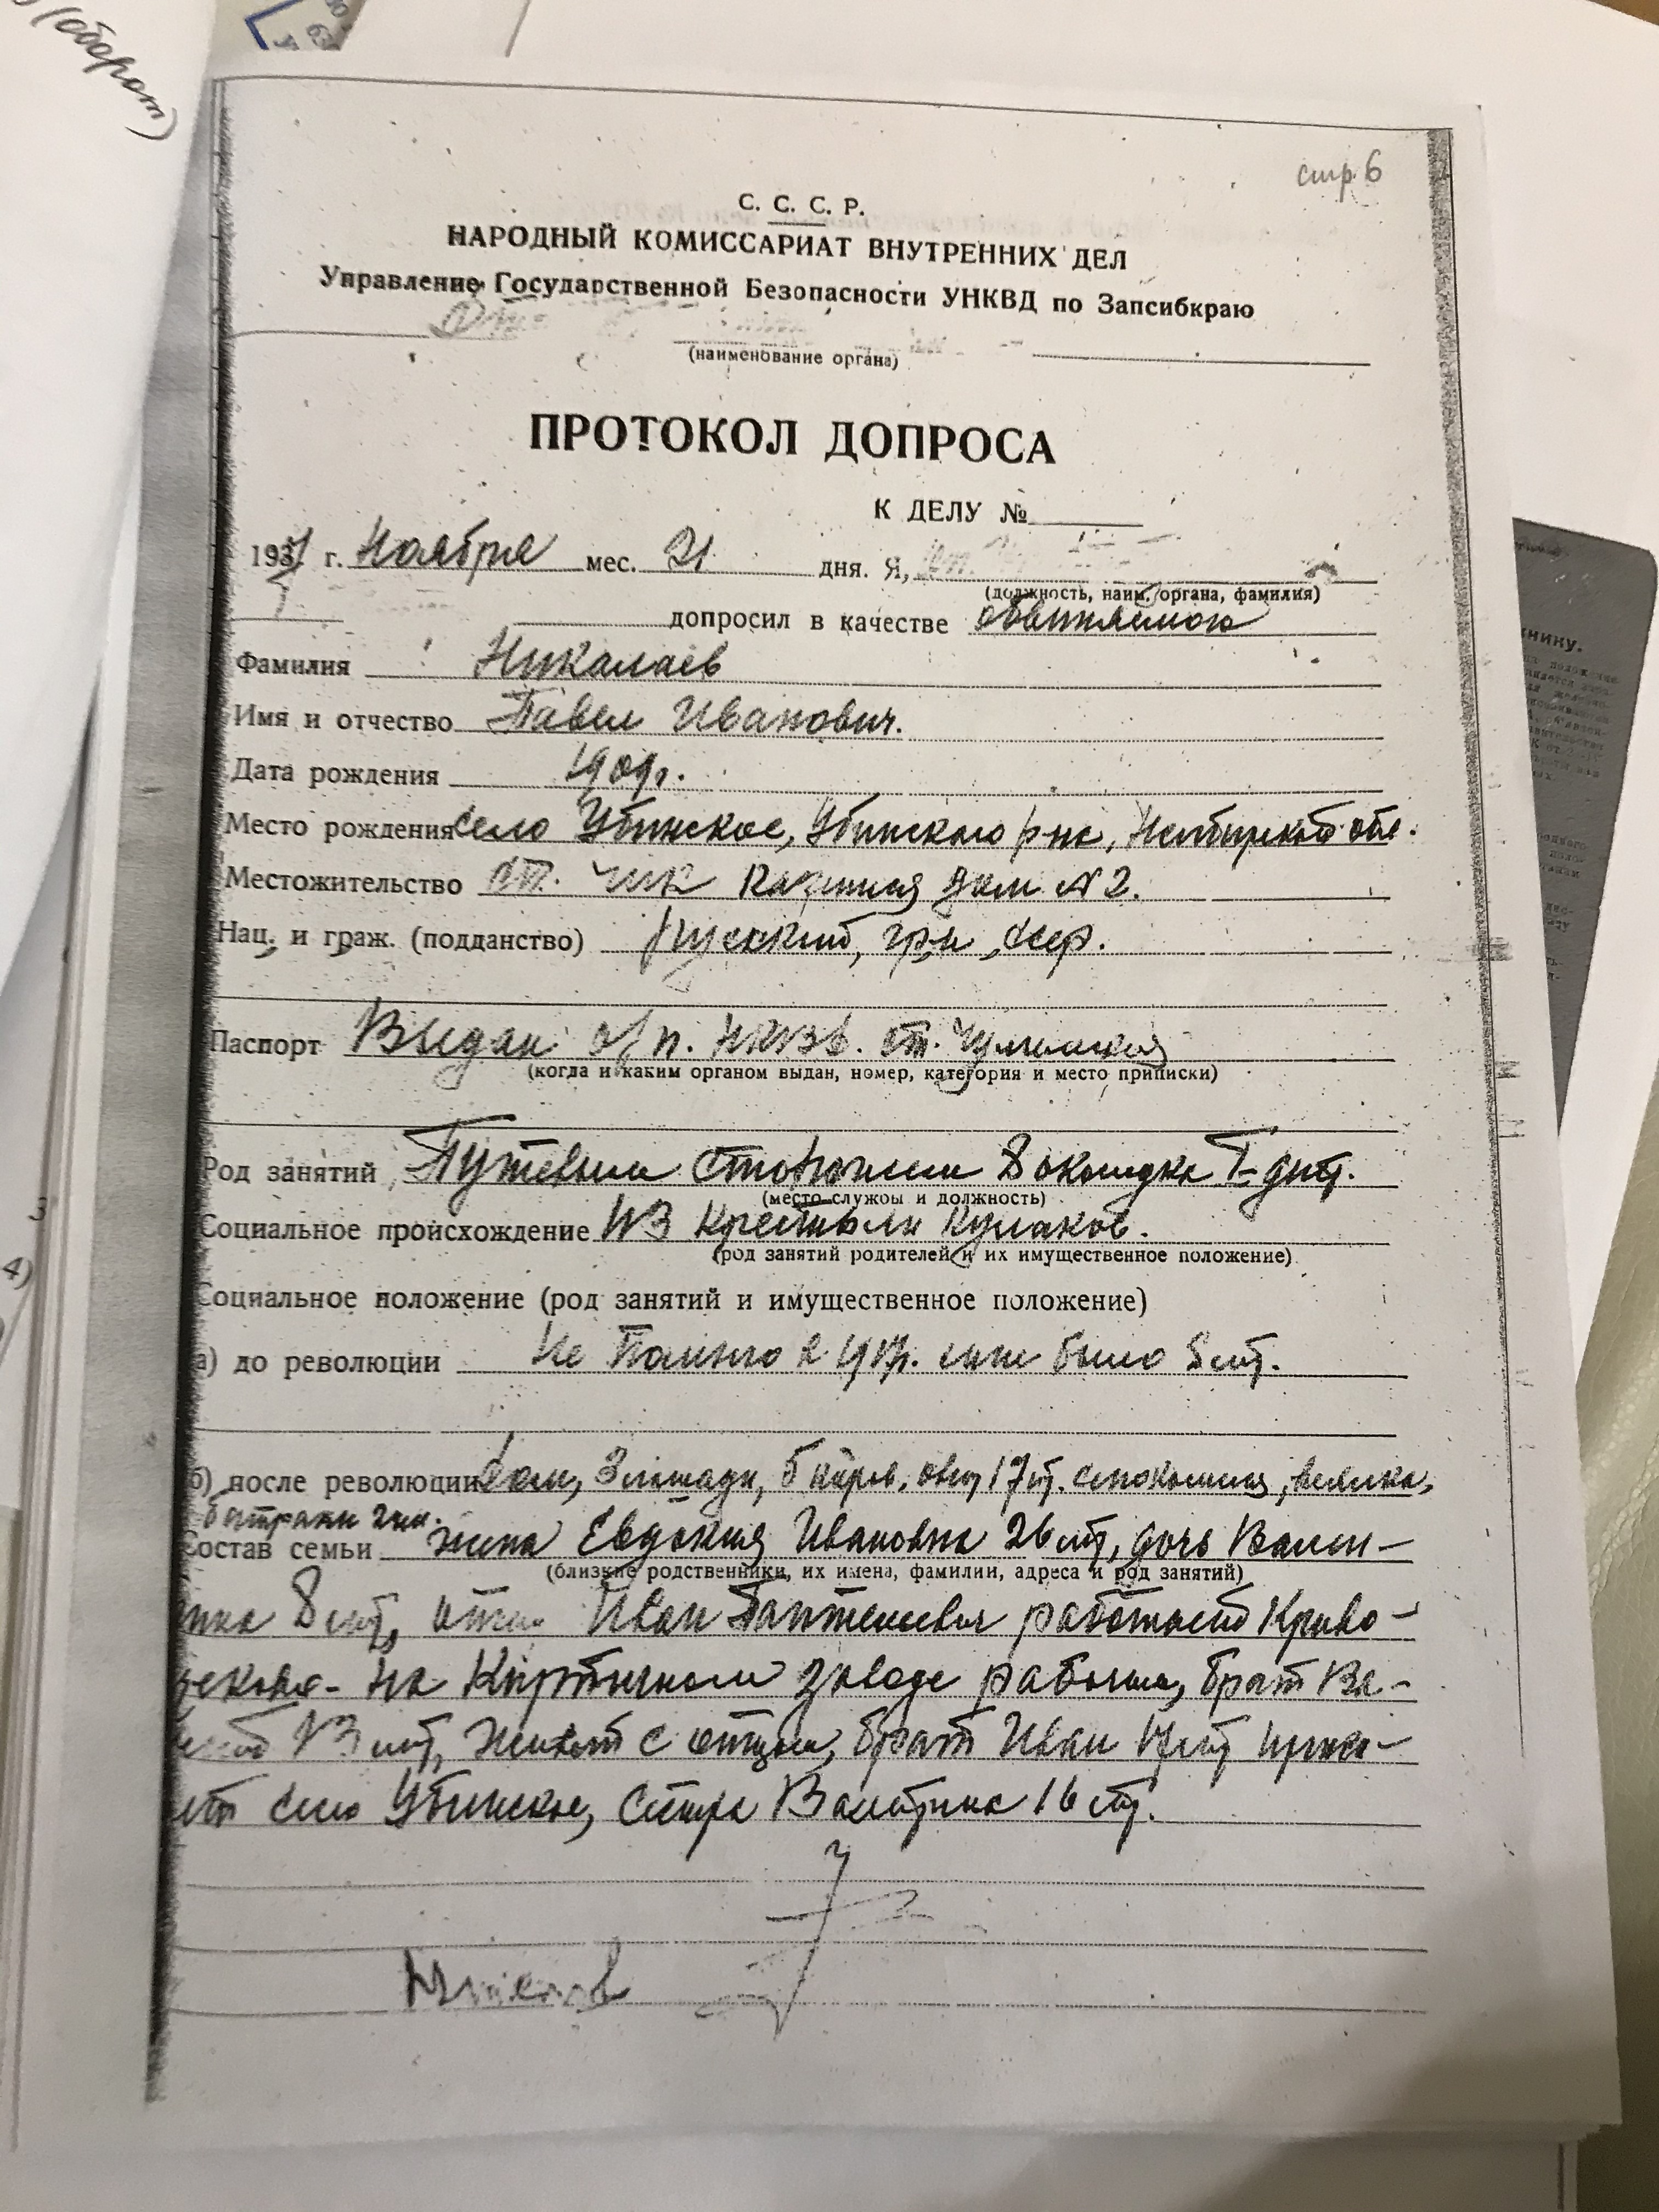 (оборот)
стр. 6
С. С. С. Р.
НАРОДНЫЙ КОМИССАРИАТ ВНУТРЕННИХ ДЕЛ
Управление Государственной Безопасности УНКВД по Запсибкраю
(наименование органа)
ПРОТОКОЛ ДОПРОСА
К ДЕЛУ №
1937 г. Ноября мес. 21 дня. Я,
(должность, наим. органа, фамилия)
допросил в качестве обвиняемого
Фамилия Никалаев
Имя и отчество Павел Иванович.
Дата рождения 1909г.
Место рождения Село Убинское, Убинского р-на, обл.
Местожительство ст. Чик Казенный дом № 2.
Нац. и граж. (подданство) русский, гр-н, ссср.
Паспорт Выдан о/п. НКВД. ст. Чулымская
(когда и каким органом выдан, номер, категория и место приписки)
Род занятий Путевым сторожем
(место службы и должность)
Социальное происхождение Из крестьян кулаков.
(род занятий родителей и их имущественное положение)
Социальное положение (род занятий и имущественное положение)
а) до революции Не в 1917г. мне было 8 лет.
б) после революции дом, 3 лошади, 5 коров, овец 17 шт. сенокосилка, веялка,
батраки 2 чел.
Состав семьи жена Евдокия Ивановна 26 лет, дочь Вален-
(близкие родственники, их имена, фамилии, адреса и род занятий)
тина 8 лет, отец Иван работает Криво-
щеково - на Кирпичном заводе рабочим, брат Ва-
13 лет, живет с отцом, брат Иван 17 лет прожи-
вает село Убинское, сестра 16 лет.